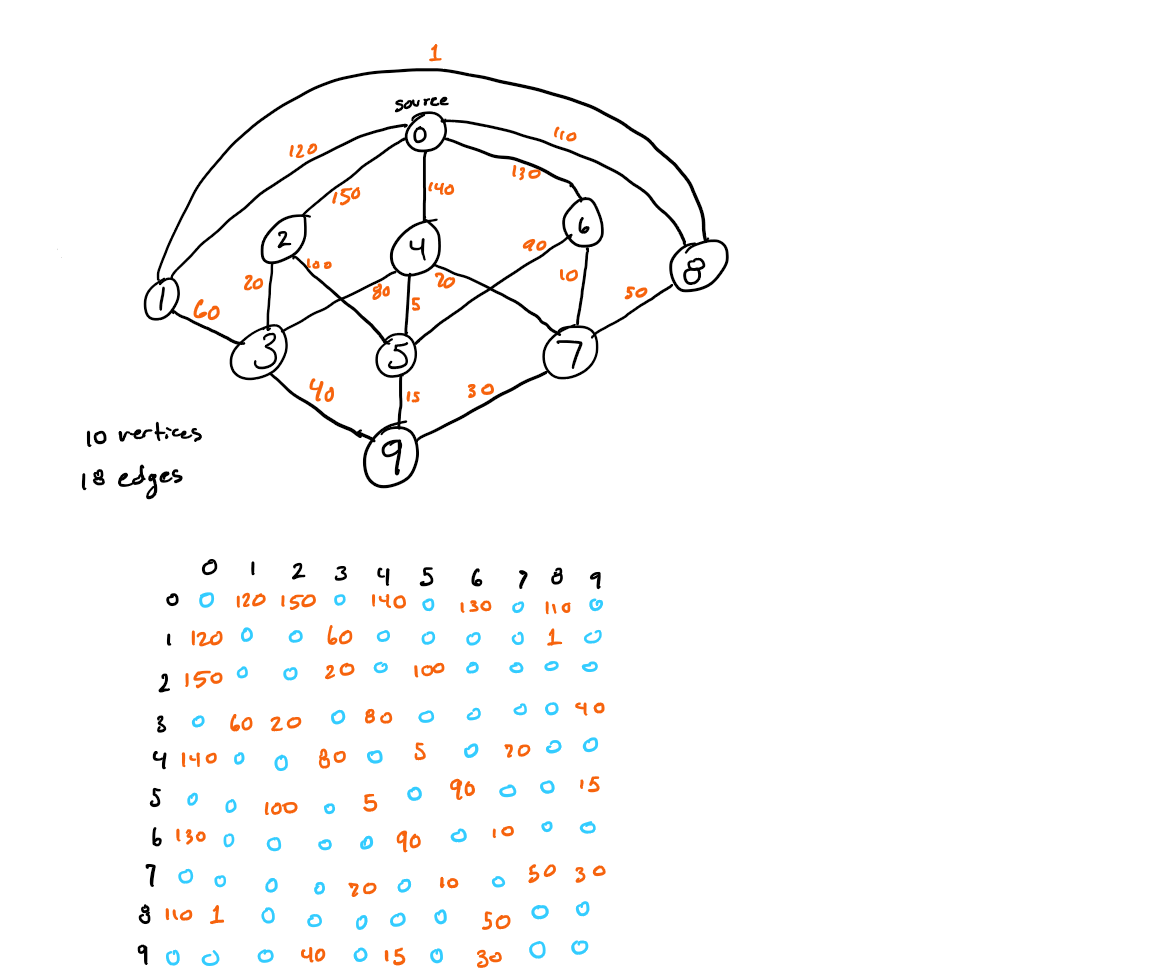 1
source
0
120
110
130
150
140
2
4
6
90
8
100
20
80
20
10
50
1
60
5
3
5
7
40
15
30
10 vertices
9
18 edges
0 1 2 3 4 5 6 7 8 9
0 0 120 150 0 140 0 130 0 110 0
1 120 0 0 60 0 0 0 0 1 0
2 150 0 0 20 0 100 0 0 0 0
3 0 60 20 0 80 0 0 0 0 40
4 140 0 0 80 0 5 0 20 0 0
5 0 0 100 0 5 0 90 0 0 15
6 130 0 0 0 0 90 0 10 0 0
7 0 0 0 0 20 0 10 0 50 30
8 110 1 0 0 0 0 0 50 0 0
9 0 0 0 40 0 15 0 30 0 0